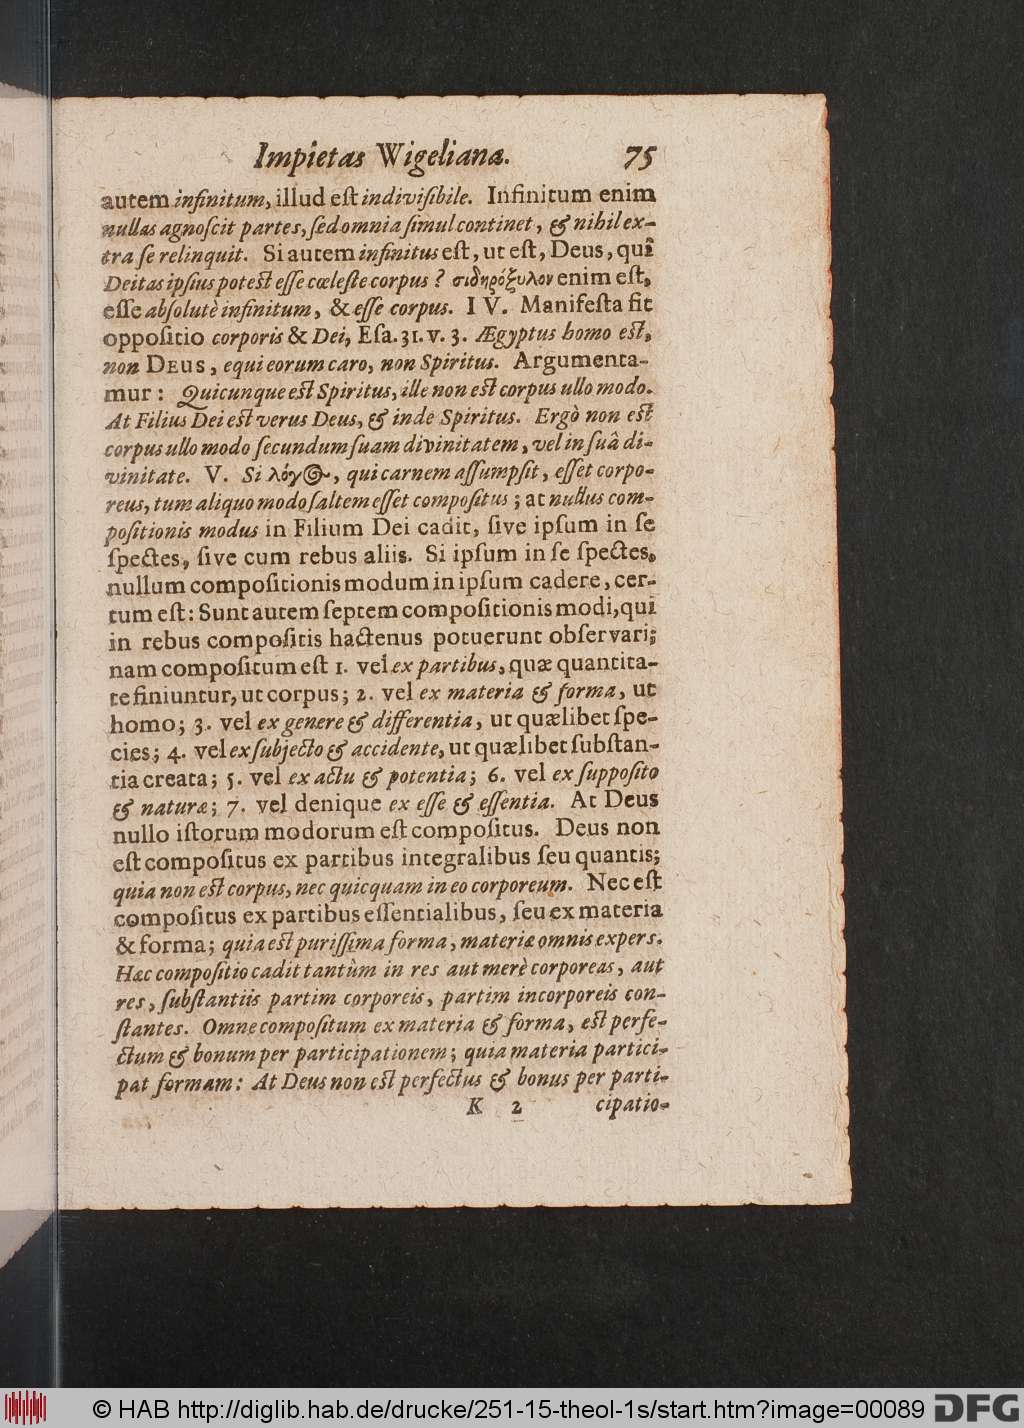 Impietas Wigeliana. 75
autem infinitum, illud est indivisibile. Infinitum enim
nullas agnoscit partes, sed omnia simul continet, & nihil ex-
tra se relinquit. Si autem infinitus est, ut est, Deus, quî
Deitas ipsius potest esse cœleste corpus? σιδηρόξυλον enim est,
esse absolutè infinitum, & esse corpus. IV. Manifesta fit
oppositio corporis & Dei, Esa. 31. v. 3. Ægyptus homo est,
non DEUS, equi eorum caro, non Spiritus. Argumenta-
mur: Quicunque est Spiritus, ille non est corpus ullo modo.
At Filius Dei est verus Deus, & inde Spiritus. Ergò non est
corpus ullo modo secundum suam divinitatem, vel in suâ di-
vinitate. V. Si λόγ@, qui carnem assumpsit, esset corpo-
reus, tum aliquo modo saltem esset compositus; at nullus com-
positionis modus in Filium Dei cadit, sive ipsum in se
spectes, sive cum rebus aliis. Si ipsum in se spectes,
nullum compositionis modum in ipsum cadere, cer-
tum est: Sunt autem septem compositionis modi, qui
in rebus compositis hactenus potuerunt observari;
nam compositum est 1. vel ex partibus, quæ quantita-
te finiuntur, ut corpus; 2. vel ex materia & forma, ut
homo; 3. vel ex genere & differentia, ut quælibet spe-
cies; 4. vel ex subjecto & accidente, ut quælibet substan-
tia creata; 5. vel ex actu & potentia; 6. vel ex supposito
& naturæ; 7. vel denique ex esse & essentia. At Deus
nullo istorum modorum est compositus. Deus non
est compositus ex partibus integralibus seu quantis;
quia non est corpus, nec quicquam in eo corporeum. Nec est
compositus ex partibus essentialibus, seu ex materia
& forma; quia est purissima forma, materiæ omnis expers.
Hæc compositio cadit tantùm in res aut merè corporeas, aut
res, substantiis partim corporeis, partim incorporeis con-
stantes. Omne compositum ex materia & forma, est perfe-
ctum & bonum per participationem; quia materia partici-
pat formam: At Deus non est perfectus & bonus per parti-
K 2 cipatio-
© HAB http://diglib.hab.de/drucke/251-15-theol-1s/start.htm?image=00089 DFG